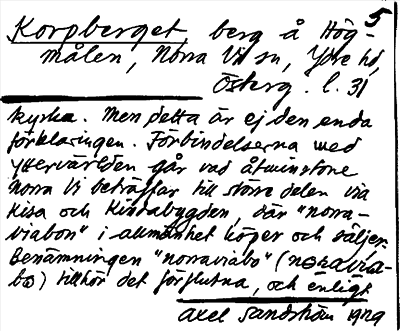 5
Korpberget berg å Hög-
målen, Norra Vi sn, Ydre hd,
Österg. l. 31
kyrka. Men detta är ej den enda
förklaringen. Förbindelserna med
yttervärlden går vad åtminstone
Norra Vi beträffar till större delen via
Kisa och Kindabygden, där "norra-
viabon" i allmänhet köper och säljer.
Benämningen "norraviabo" (
bo) tillhör det förflutna, och enligt
Axel Sandström 1929